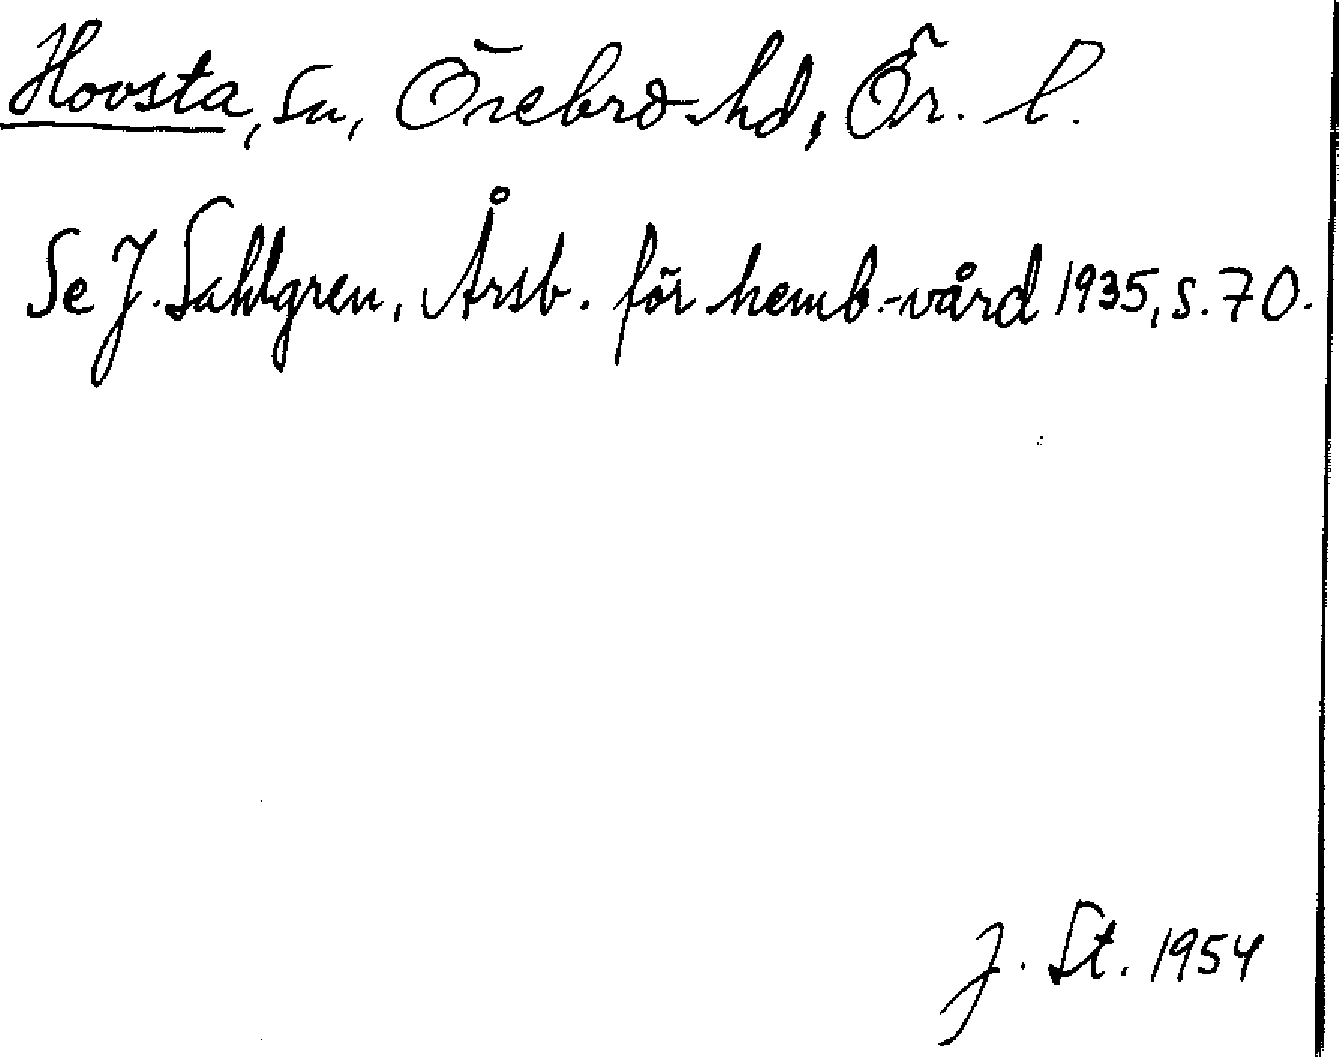 Hovsta, sn, Örebro hd, Ör. l.
Se J. Sahlgren, Årsb. för hemb.-vård 1935, s. 70.
J. St. 1954